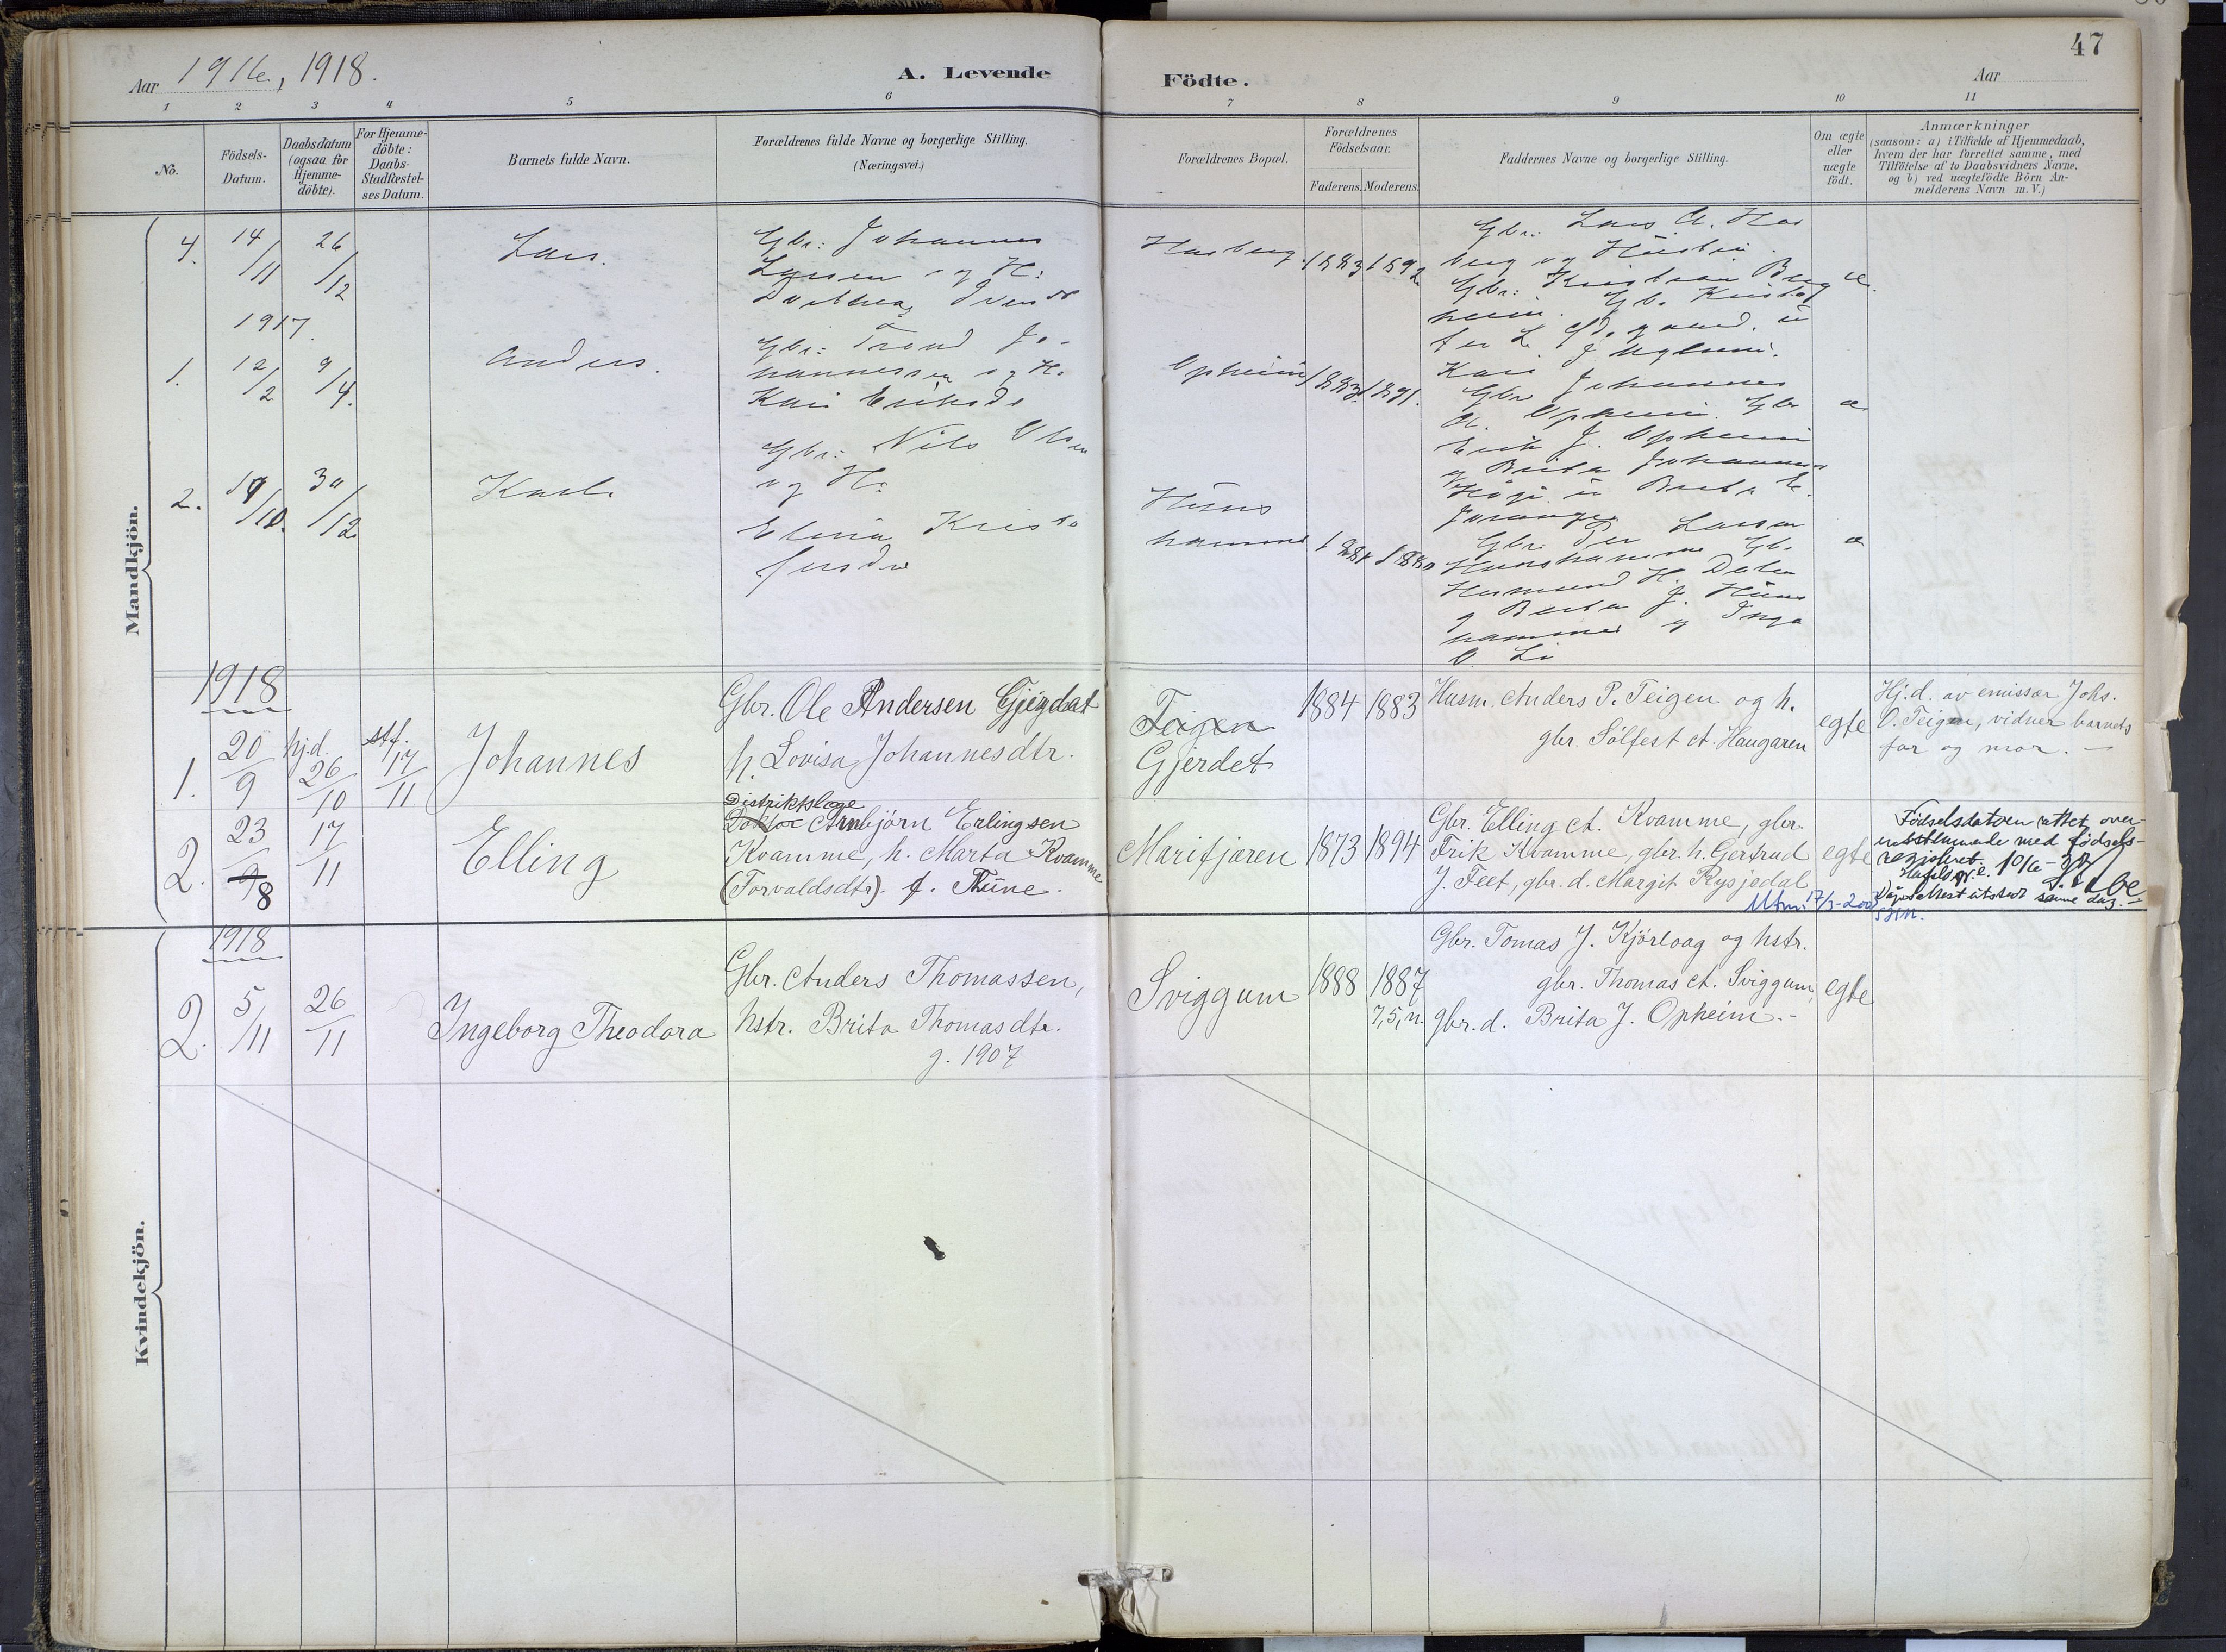 47
Aar 1916, 1918.
A. Levende Födte.
Aar
1 2 3 4 5 6 7 8 9 10 11
No.
Födsels-
Datum.
Daabsdatum
(ogsaa for
Hjemme-
döbte).
For Hjemme-
döbte:
Daabs-
Stadfæstel-
ses Datum.
Barnets fulde Navn.
Forældrenes fulde Navne og borgerlige Stilling.
(Næringsvei.)
Forældrenes Bopæl.
Forældrenes
Födselsaar.
Faderens. Moderens.
Faddernes Navne og borgerlige Stilling.
Om ægte
eller
uægte
födt.
Anmærkninger
(saasom: a) i Tilfælde af Hjemmedaab,
hvem der har forrettet samme, med
Tilföielse af to Daabsvidners Navne.
og b) ved uægtefödte Börn An-
melderens Navn m. V.)
Mandkjön.
4. 14/11 26/12
Lars.
Gbr: Johannes
Larsen og H:
Hasberg 1883 1892
Gbr: Lars A. Has
berg og Hustru.
1917.
1. 12/2 9/4.
Anders.
Gbr: Trond Jo-
hannessen og H.
Kari Eriksdr
Opheim 1883 1891.
Kari Johannes
Gbr
A. Opheim. Gbr
Erik J. Opheim
og Brita Johannes
2. 19/10. 30/12
Karl.
Gbr: Nils Olsen
og H:
Elina Kristo
fersdr
Huns
hamme 1884 1880
Gbr: Per Larsen
Hunshamme Gb.
Hermund H. Dalen
g Berta J. Huns
hamme og Inga
O. Li
1918
1. 20/9 hj.d. 26/10 stf. 17/11
Johannes
Gbr. Ole Andersen Gjerdet
h. Lovisa Johannesdtr.
Teigen
Gjerdet
1884 1883
Husm. Anders P. Teigen og h.
gbr. Sölfest A. Haugaren
egte
Hj.d. av emissær Johs.
O. Teigen, vidner barnets
far og mor. —
2. 23/9 8 17/11
Elling
Distriktslæge
Doktor Arnbjörn Erlingsen
Kvamme, h. Marta Kvamme
(Torvaldsdtr). f. Tüne.
Marifjæren 1873 1894
Gbr. Elling A. Kvamme, gbr.
Erik Kvamme, gbr. h. Gertrud
J. Feet, gbr. d. Margit Rysjedal
egte
Födselsdatoen rettet over-
ensstemmende med födsels-
registeret.
Hafslo pr.e. 10/6-32
Dåpsattest utstedt samme dag. —
Utm: 17/3-2003
Kvindekjön.
1918
2. 5/11 26/11
Ingeborg Theodora
Gbr. Anders Thomassen,
hstr. Brita Thomasdtr.
g. 1907
Sviggum 1888 1887
7,5, n.
Gbr. Tomas J. Kjörlaug og hstr.
gbr. Thomas A. Sviggum,
gbr. d. Brita J. Opheim. -
egte